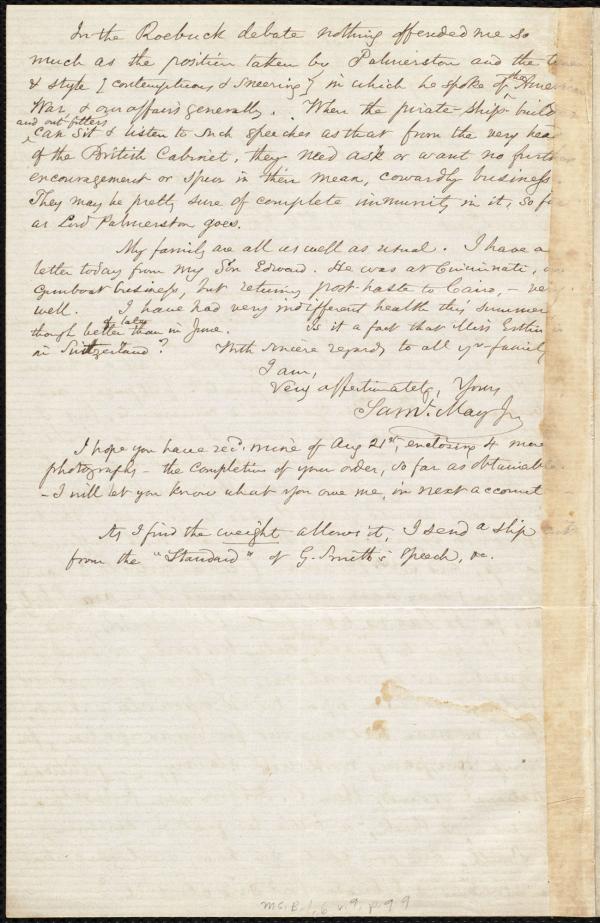 In the Roebuck debate nothing offended me so
much as the position taken by Palmerston and the tone
& style [contemptuous & sneering] in which he spoke of the American
War, & our affairs generally. When the pirate-ship-build
and out-fitters
can sit & listen to such speeches as that from the very head
of the British Cabinet, they need ask or want no further
encouragement or spur in their mean, cowardly business.
They may be pretty sure of complete immunity in it, so far
as Lord Palmerston goes.
My family are all as well as usual. I have a
letter today from my Son Edward. He was at Cincinnati, on
gunboat business, but returns post-haste to Cairo, – very
well. I have had very indifferent health this summer
though better of late than in June. Is it a fact that Miss
in Switzerland? With sincere regards to all yr. family
I am,
Very affectionately, Yours
Saml. May Jr.
I hope you have recd. mine of Aug 21st, enclosing 4 more
photographs – the completion of your order, so far as obtainable.
– I will let you know what you owe me, in next account
As I find the weight allows it, I send a slip
from the "Standard" of G. Smith's speech, &c.
Ms. B. 1. 6 v. 9, p. 99